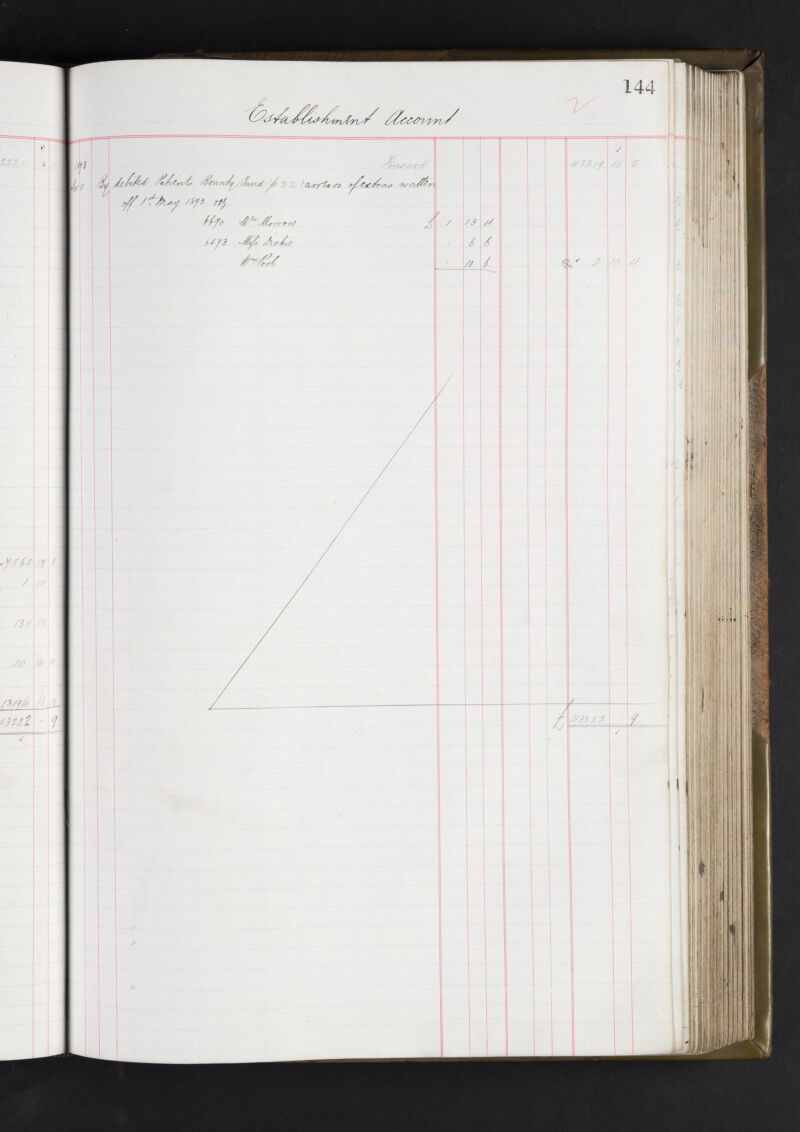 144
Establishment Account
1893 Forward 43219 10 5
By debited Patients Bounty Fund (p 221) arrears of extras written
off 1st May 1893 viz
6690 Wm Morrow £ 1 13 4
6573 Miss Dickie . 6 6
Wm . 10 6 2 10 4
£ 43222 . 9
4565 14
1
134 13
110 10 11
43222 . 9